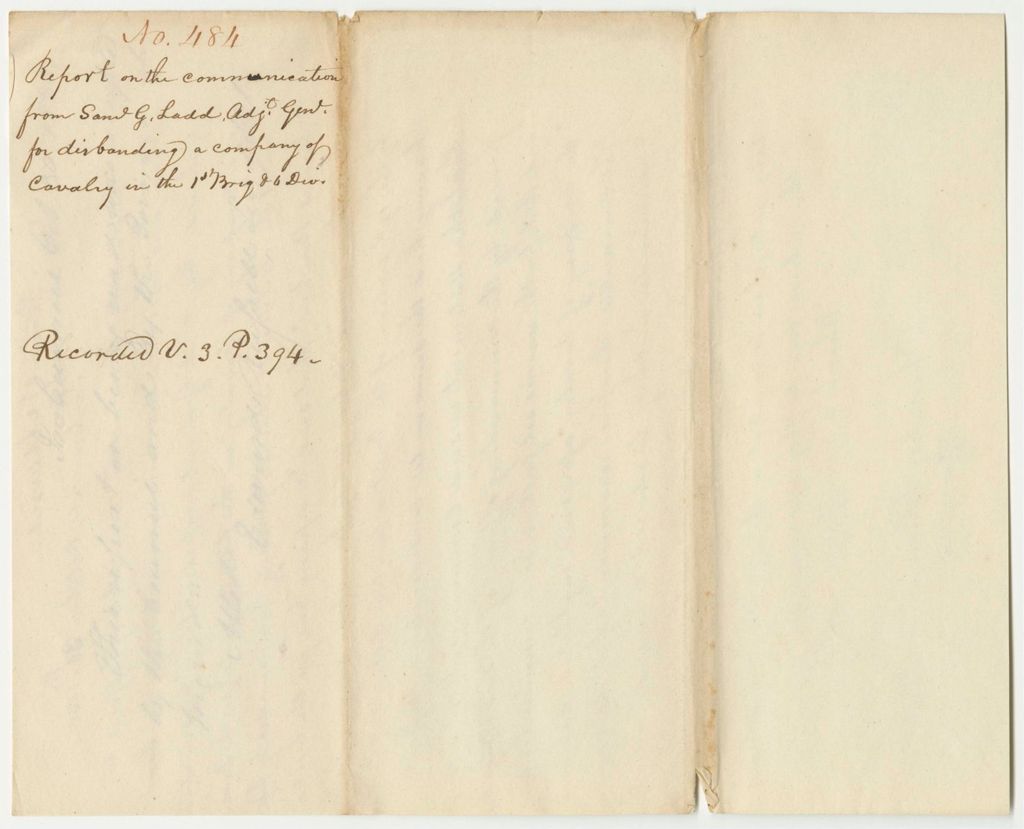 No. 484
Report on the communication
from Saml G. Ladd, Adjt. Genl.
for disbanding a company of
Cavalry in the 1st Brig & 6 Div.
Recorded V. 3. P. 394.